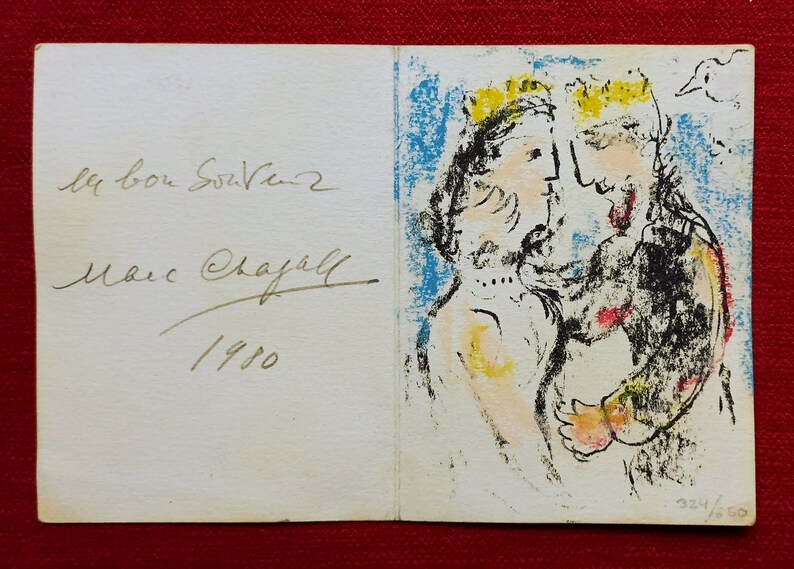 en bon Souvenir
Marc Chagall
1980
324/650